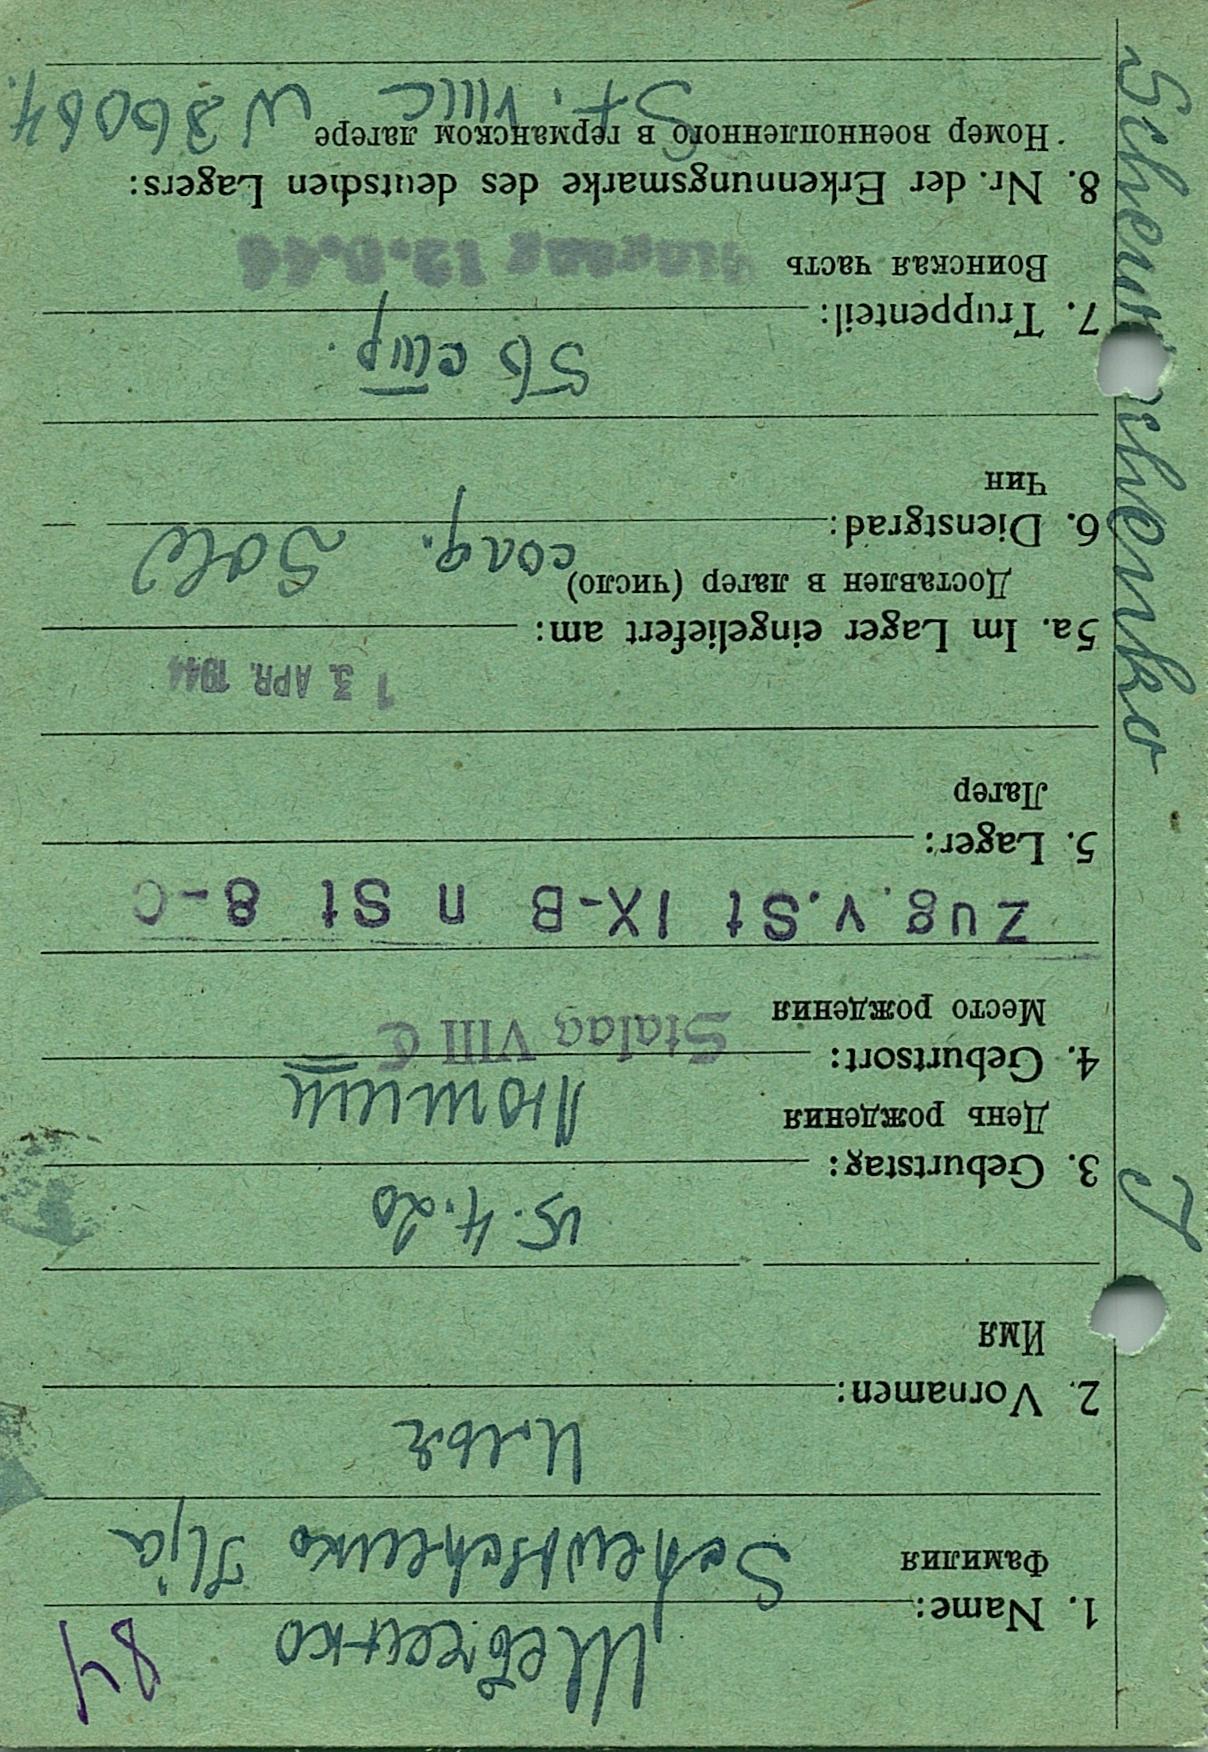 84
Шевченко
1. Name:
Фамилия
Schewtschenko Ilja
Илья
2. Vornamen:
Имя
15.4.20
3. Geburtstag:
День рождения
4. Geburtsort:
Место рождения
Stalag VIII C
Zug. v. St IX-B n St 8-C
5. Lager:
Лагер
13. APR. 1944
5a. Im Lager eingeliefert am:
Доставлен в лагер (число)
солд. Sold
6. Dienstgrad:
Чин
56 стр.
7. Truppenteil:
Воинская часть
8. Nr. der Erkennungsmarke des deutschen Lagers:
Номер военнопленного в германском лагере
St. VIIIC
J